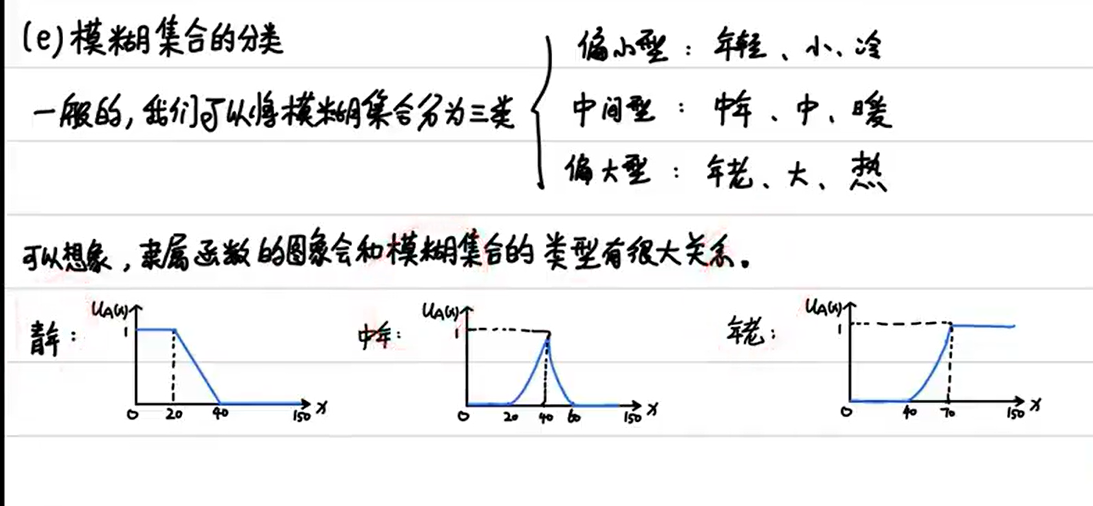 (e) 模糊集合的分类
一般的，我们可以将模糊集合分为三类
偏小型：年轻、小、冷
中间型：中年、中、暖
偏大型：年老、大、热
可以想象，隶属函数的图象会和模糊集合的类型有很大关系。
青年：
UA(x)
1
0 20 40 150 x
中年：
UA(x)
1
0 20 40 60 150 x
年老：
UA(x)
1
0 40 70 150 x